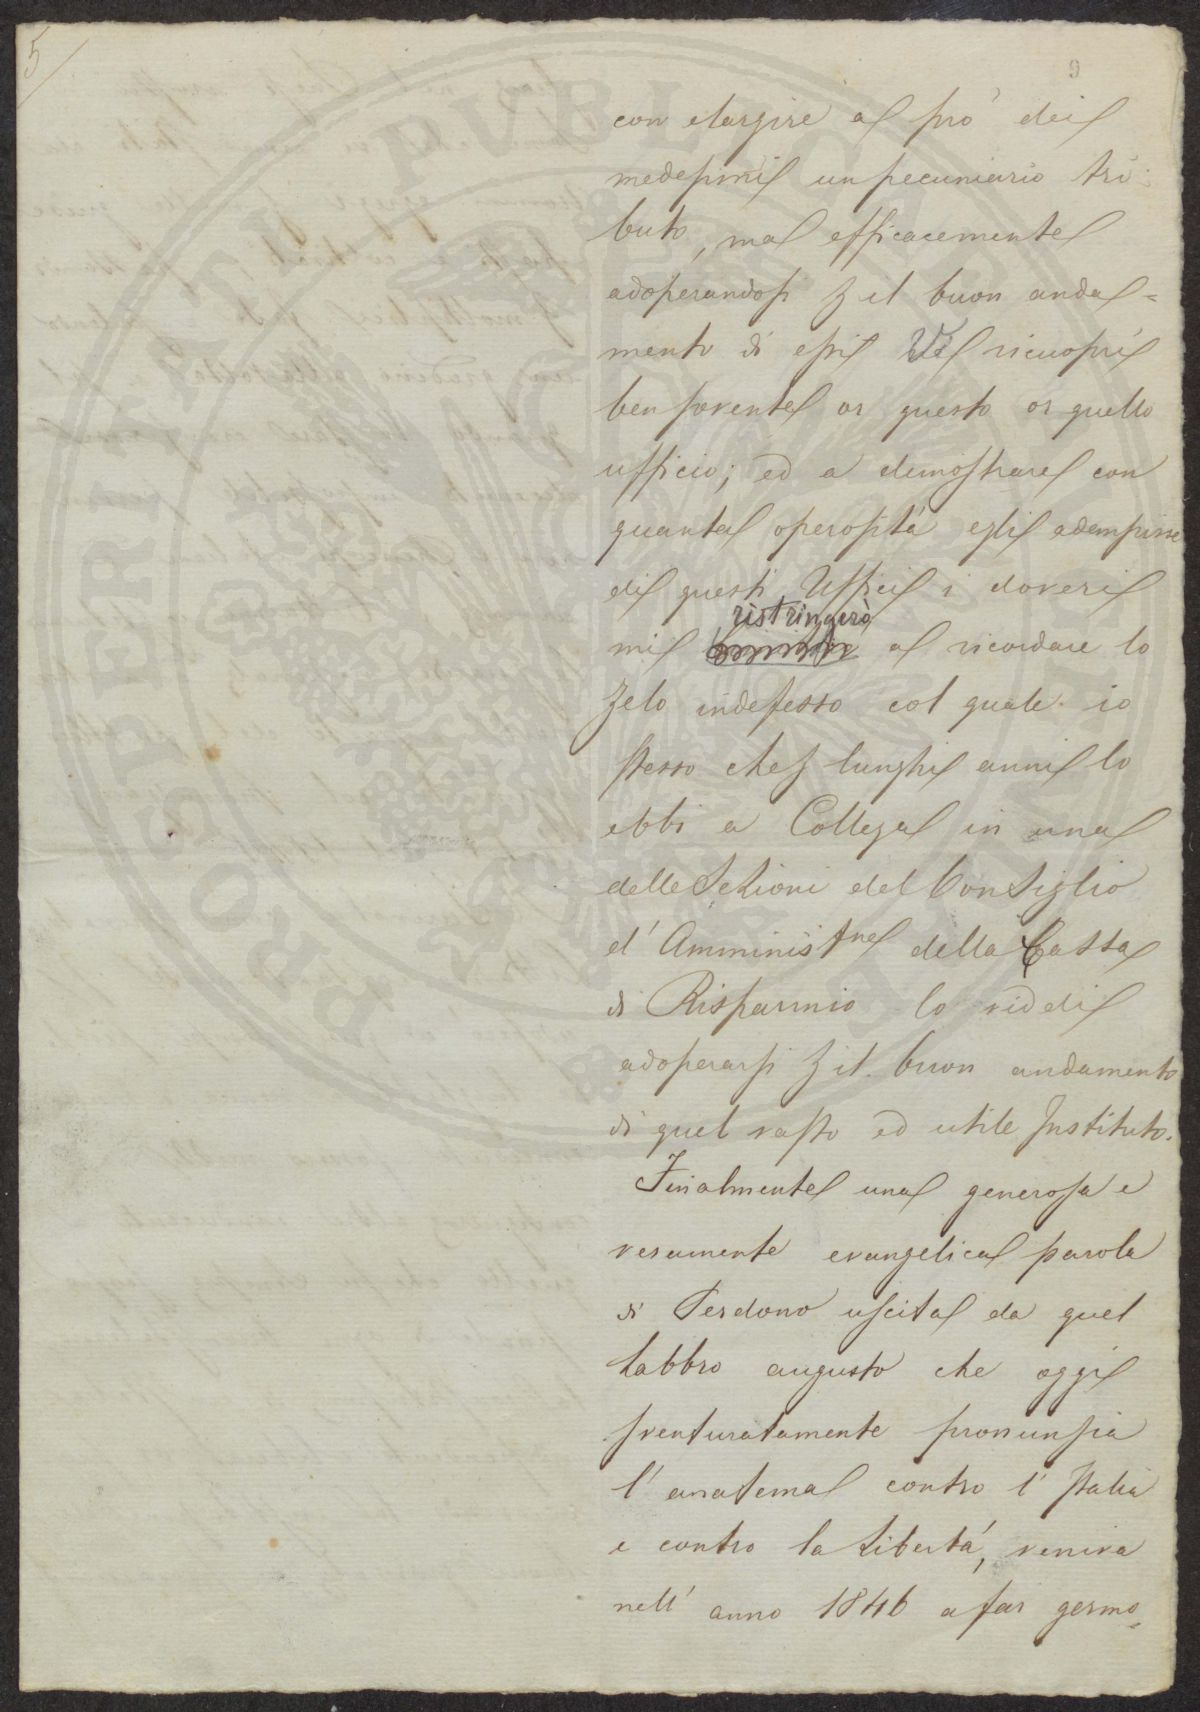 5
9
con elargire a prò dei
medesimi un pecuniario tri-
buto, ma efficacemente
adoperandosi p il buon anda=
mento di essi Vi ricuoprì
ben sovente or questo or quello
ufficio; ed a dimostrare con
quanta operosità egli adempisse
di questi Uffici i doveri
ristringerò
mi a ricordare lo
zelo indefesso col quale io
stesso che p lunghi anni lo
ebbi a Collega in una
delle Sezioni del Consiglio
d'Amministne della Cassa
di Risparmio lo viddi
adoperarsi p il buon andamento
di quel vasto ed utile Instituto.
Finalmente una generosa e
veramente evangelica parola
di Perdono uscita da quel
labbro augusto che oggi
sventuratamente pronunsia
l'anatema contro l'Italia
e contro la Libertà, veniva
nell'anno 1846 a far germo=
PROPRIETATI PUBLICAE